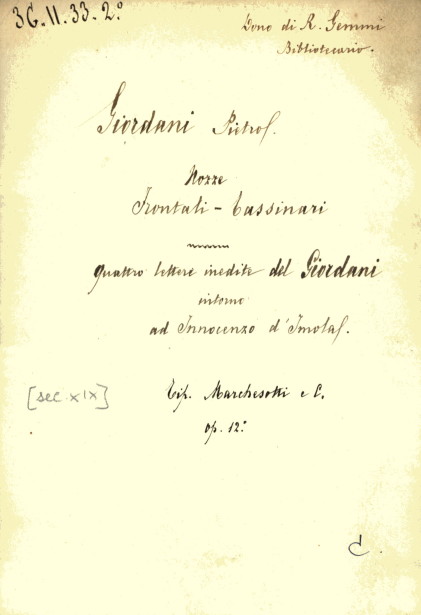 36.II.33.2°
Dono di R. Gemmi
Bibliotecario.
Giordani Pietro.
Nozze
Frontali - Cassinari
Quattro lettere inedite del Giordani
intorno
ad Innocenzo d'Imola.
[sec. XIX]
Tip. Marchesotti e C.
op. 12°
C.